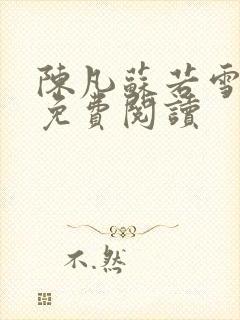 陳凡蘇若雪
免費閱讀
不.然